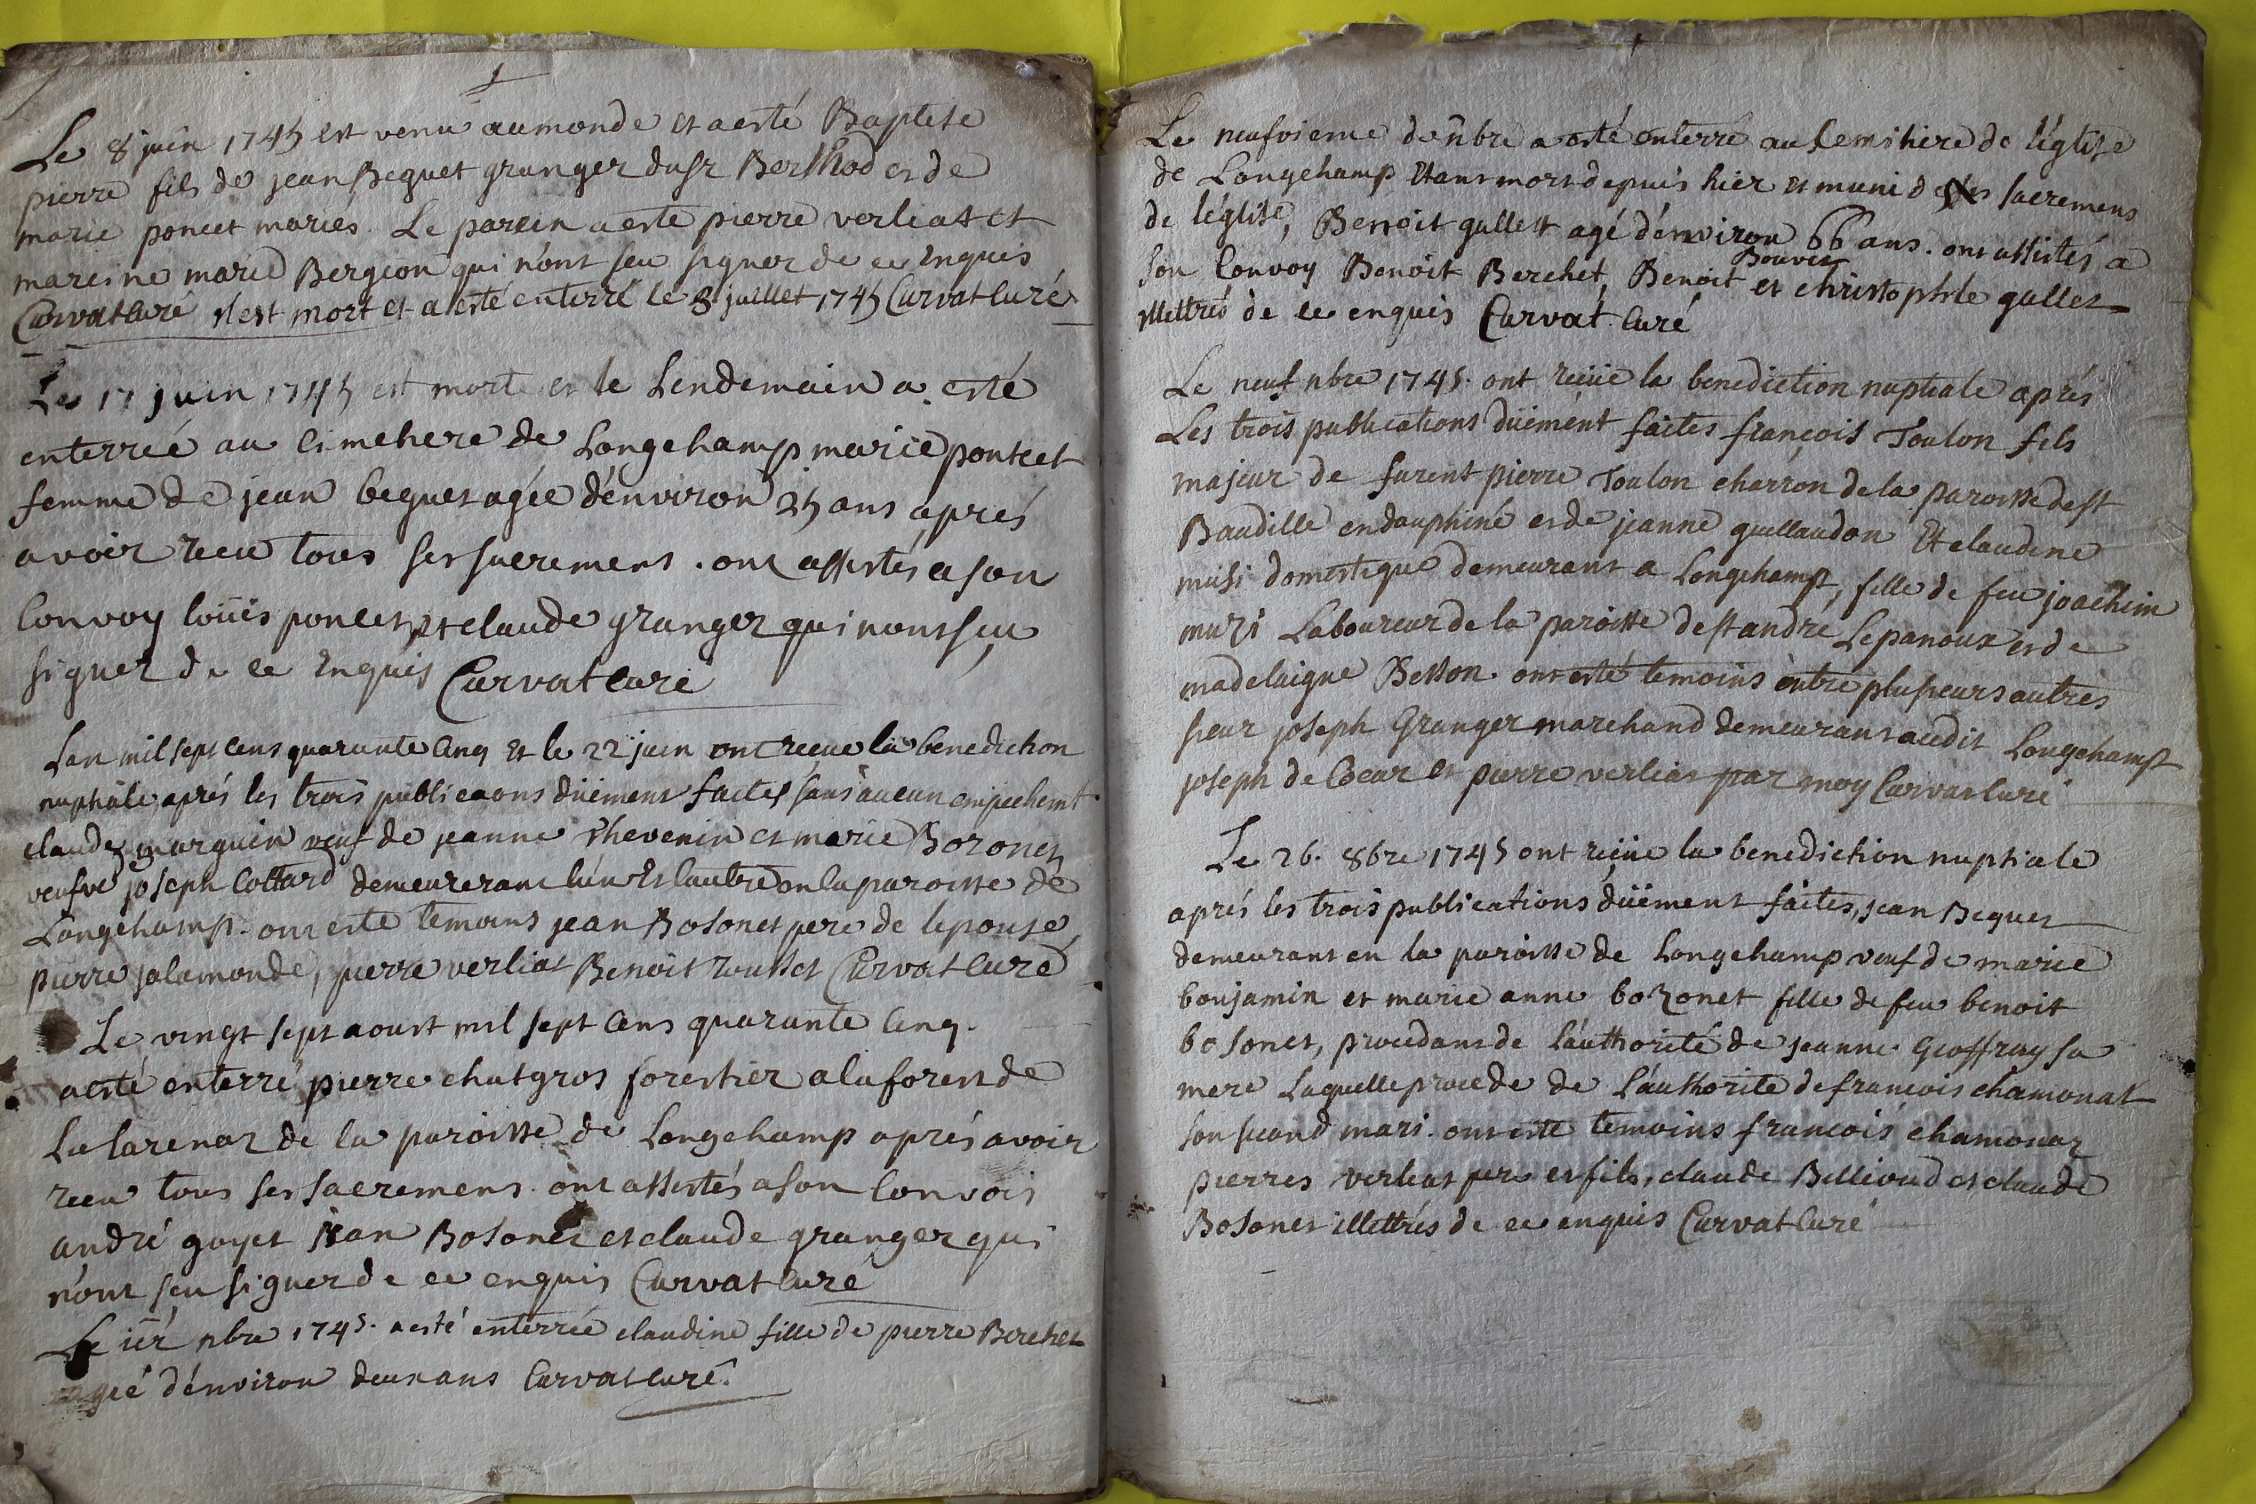 Le 8 juin 1745 est venu au monde et a esté Baptise
pierre fils de jean Beguet granger du sr Berthod et de
marie poncet mariés. Le parein a este pierre verliat et
mareine marie Bergeon qui n'ont seu signer de ce Enquis
Curvat Curé il est mort et a esté enterré le 8 juillet 1745 Curvat Curé
Le 17 juin 1745 est morte et le Lendemain a esté
enterréé au Cimehere de Longchamp marie pontcet
femme de jean beguet agée d'environ 25 ans aprés
avoir receu tous ses sacremens. ont assistés a son
Convoy loüis poncet et claude granger qui n'ont sçu
signer de ce Enquis Curvat Curé
Lan mil sept Cens quarante Cinq Et le 22 juin ont reçeue la benediction
nuptiale, aprés les trois publicaons düement faites sans aucun empechemt
claude marguin veuf de jeanne thevenin et marie Bozonet
veufve joseph Cottard demeurerant l'un Et lautre en la paroisse de
Longchamp. ont este temoins jean Bosonet pere de lepouse,
pierre jalamonde, pierre verliat Benoit rousset Curvat Curé
Le vingt sept aoust mil sept Cens quarante Cinq.
a esté enterré pierre chatgros forestier a la forest de
La larenaz de la paroisse de Longchamp aprés avoir
receu tous ses sacremens. ont assistés a son Convois
andré goyet jean Bosonet et claude granger qui
n'ont seu signer de ce enquis Curvat Curé
Le ier nbre 1745. a esté enterréé claudine fille de pierre Berchet
agée d'environ deux ans Curvat Curé.
Le neufvieme de nbre a esté enterré au Cemitiere de l'église
de Longchamp Etant mort depuis hier et muni des sacremens
de l'église, Benoit gallett agé d'environ 66 ans. ont assistés a
son Convoy Benoit Berchet, Benoit Bouvet et christophle gallet
illettrés de ce enquis Curvat Curé
Le neuf nbre 1745. ont reçüe la benediction nuptiale aprés
Les trois publications düement faites françois Toulon fils
majeur de furent pierre Toulon charron de la paroisse de st
Baudille en dauphiné et de jeanne guillaudon Et claudine
musi domestique demeurant a Longchamp, fille de feu joachim
muzi Laboureur de la paroisse de st andré Lepanoux et de
madelaigne Besson. ont esté temoins entre plusieurs autres
sieur joseph Granger marchand demeurant audit Longchamp
joseph de Coeur et pierre verliat par moy Curvat Curé
Le 26. 8bre 1745 ont reçüe la benediction nuptiale
aprés les trois publications düement faites, jean Beguet
demeurant en la paroisse de Longchamp veuf de marie
bonjamin et marie anne bozonet fille de feu benoit
bosonet, procedant de l'authorité de jeanne Geoffray sa
mere Laquelle procede de L'authorité de francois chamonat
son second mari. ont este temoins francois chamonaz
pierres verliat pere et fils, claude Billioud et claude
Bosonet illettrés de ce enquis Curvat Curé